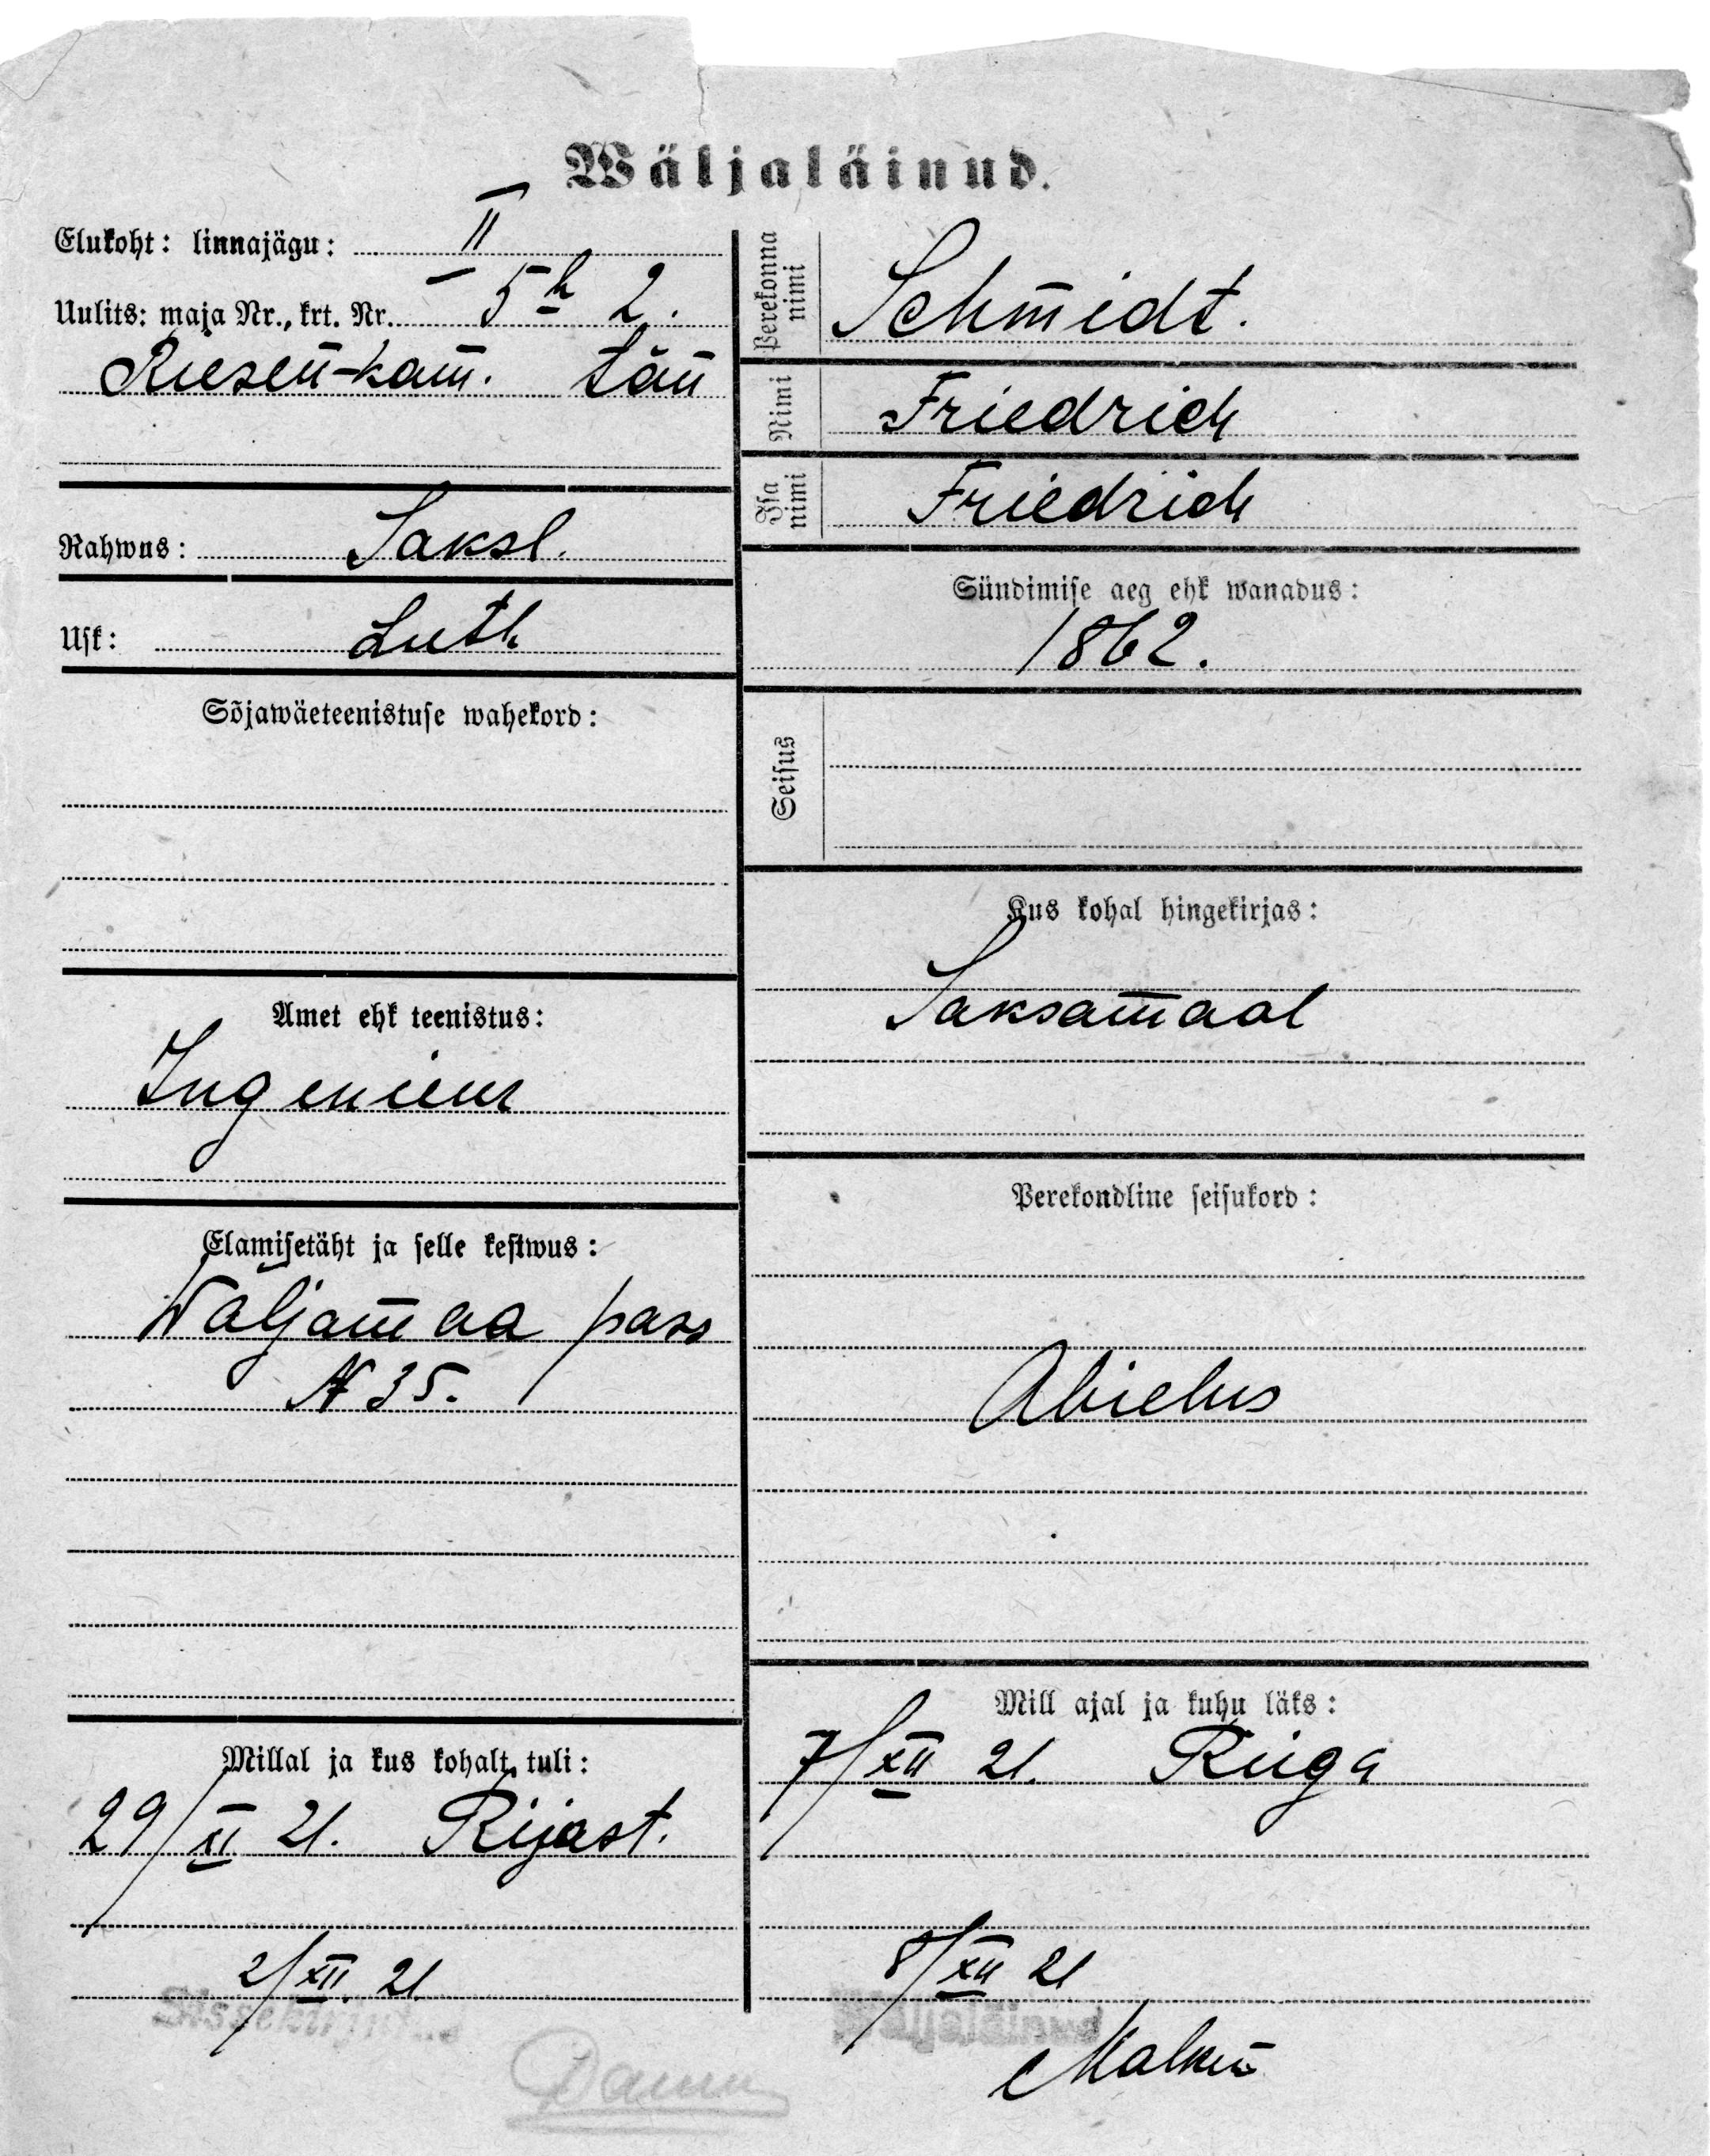 Wäljaläinud.
Elukoht: linnajägu: II
Uulits: maja Nr., krt. Nr. 5 2.
Riesen-kam. tän
Rahwus: Saksl.
Usk: Luth
Sõjawäeteenistuse wahekord:
Amet ehk teenistus:
Ingenieur
Elamisetäht ja selle kestwus:
Wäljamaa pass
N 35.
Millal ja kus kohalt tuli:
29/XI 21. Rijast.
2/XII. 21.
Sissekirjutud
Perekonna nimi Schmidt.
Nimi Friedrich
Isa nimi Friedrich
Sündimise aeg ehk wanadus:
1862.
Seisus
Kus kohal hingekirjas:
Saksamaal
Perekondline seisukord:
Abielus
Mill ajal ja kuhu läks:
7/XII 21. Riiga
8/XII 21
Wäljaläinud